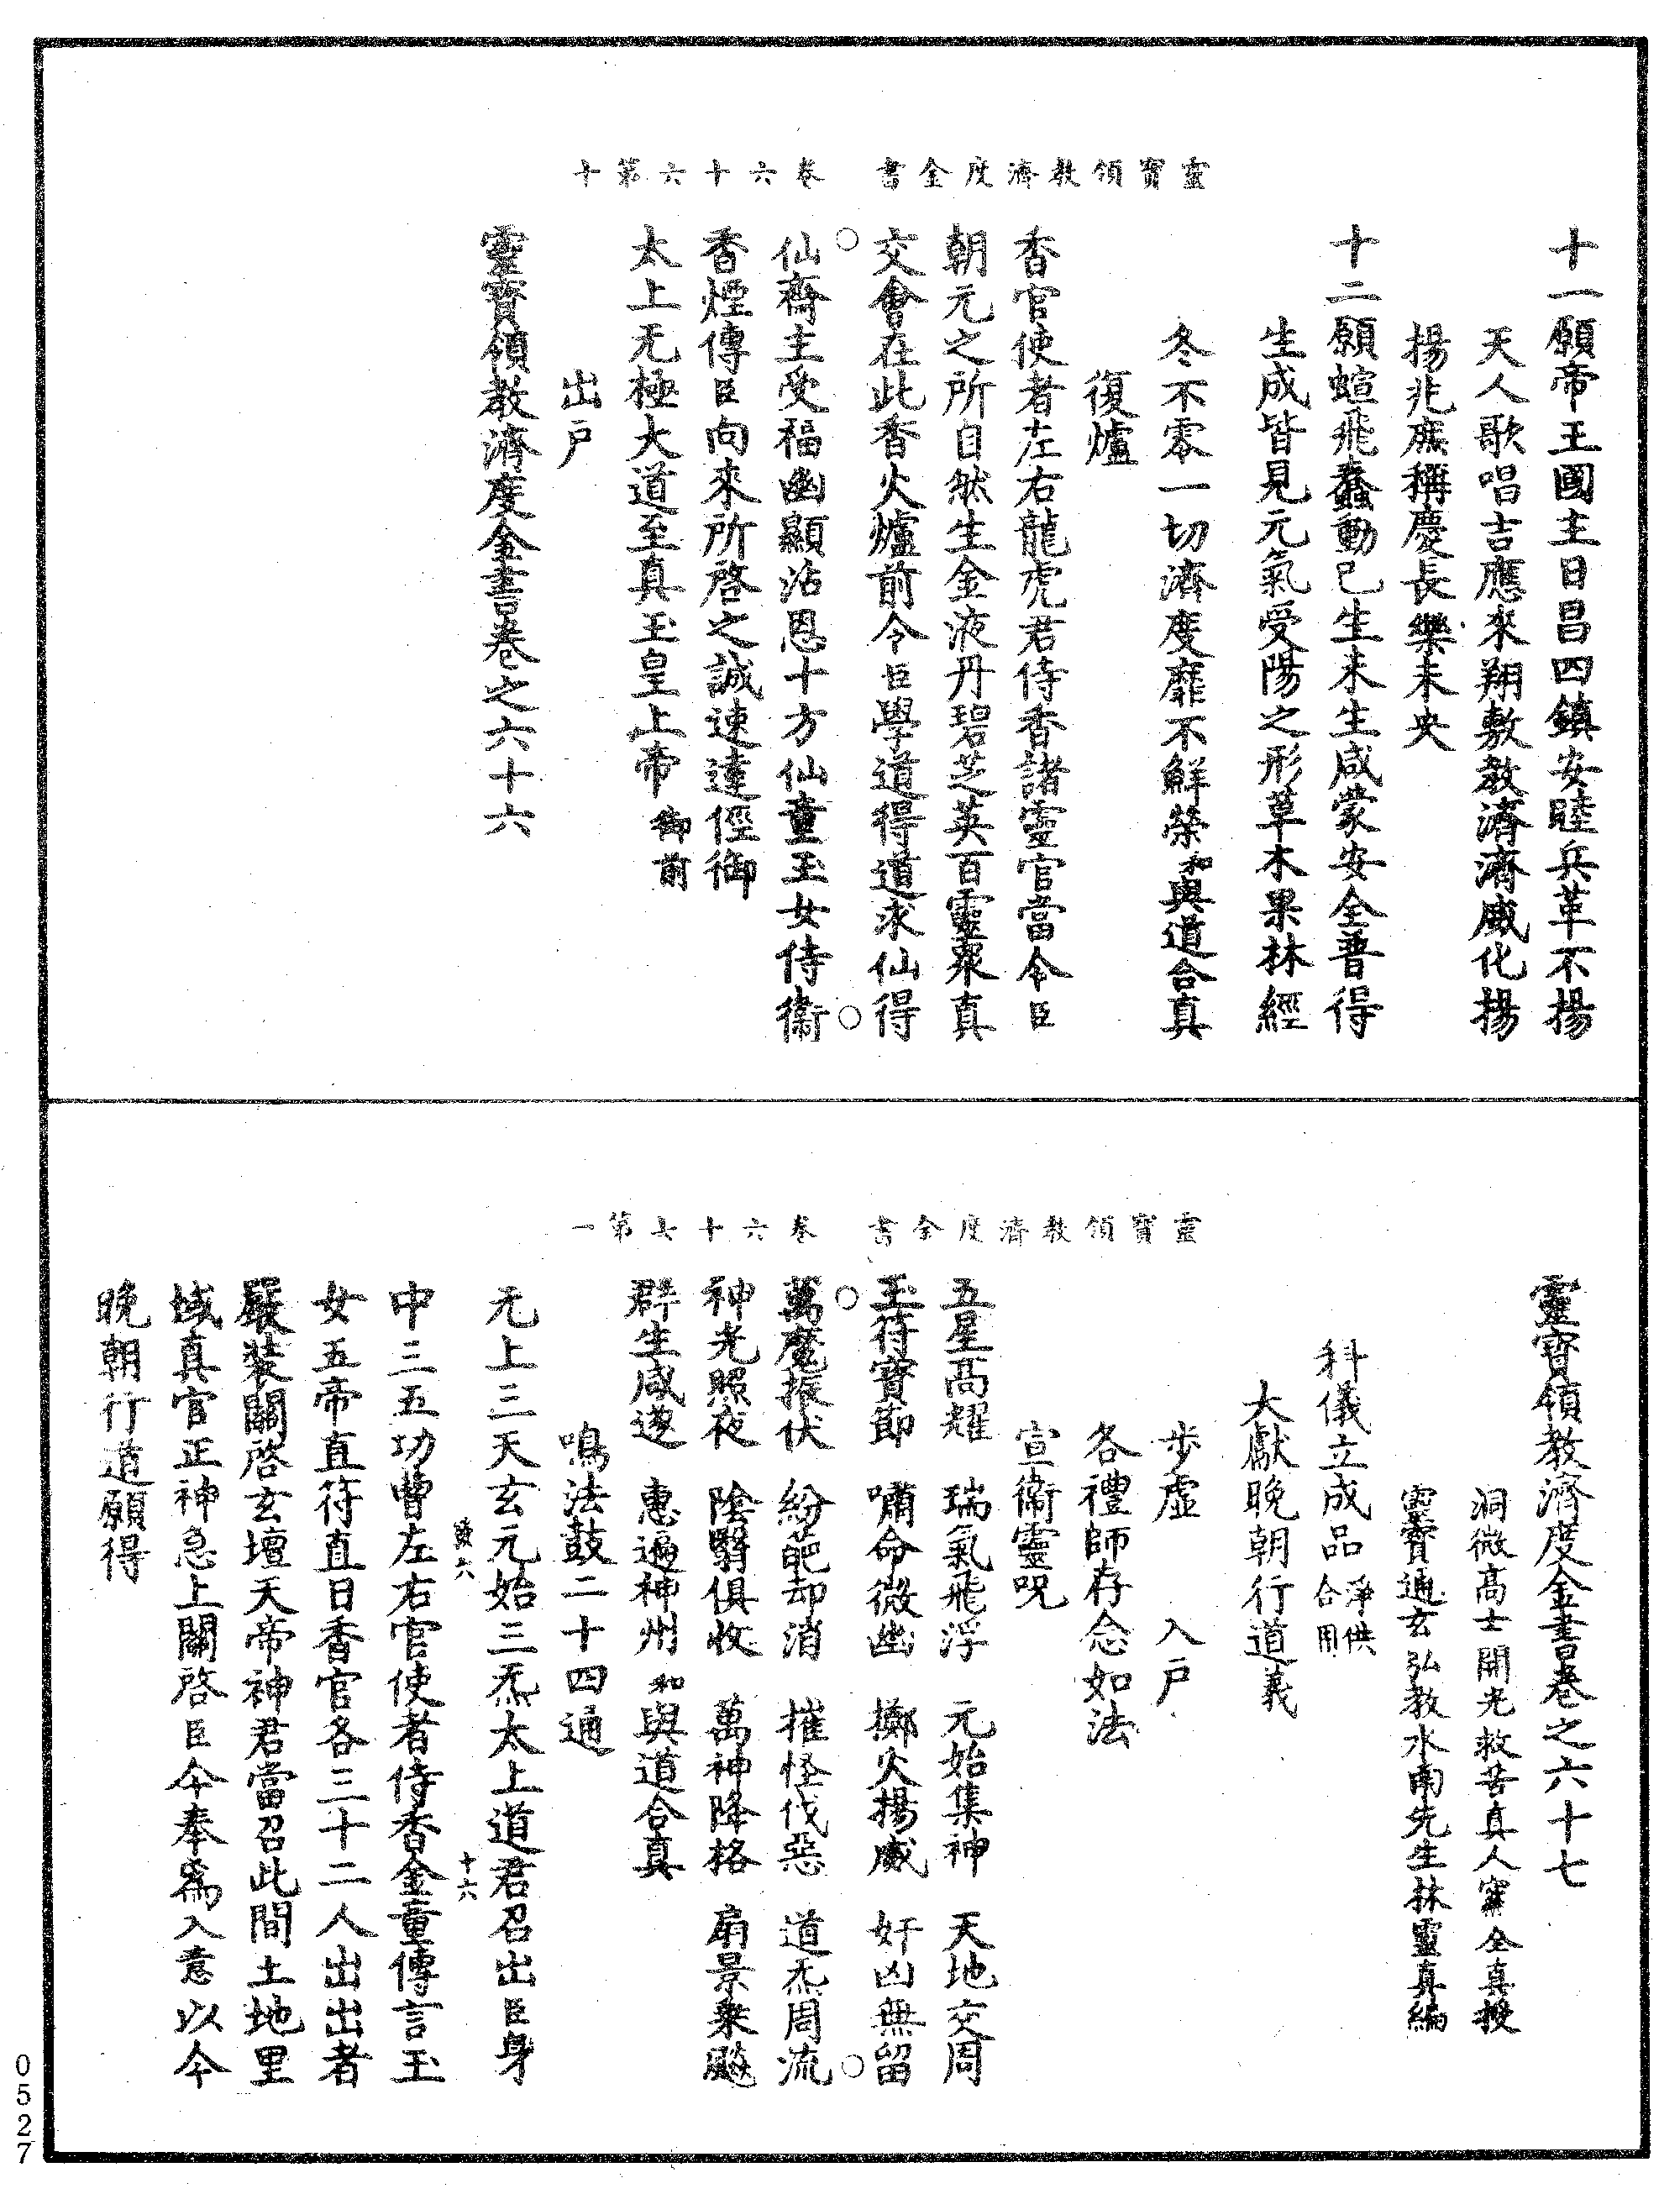 靈寶領教濟度金書　卷六十六第十
十一願帝王國主日昌四鎮安睦兵革不揚
天人歌唱吉應來翔敷教濟濟威化揚
揚兆庶稱慶長樂未央
十二願蝖飛蠢動已生未生咸蒙安全普得
生成皆見元氣受陽之形草木果林經
冬不零一切濟度靡不鮮榮和與道合真
復爐
香官使者左右龍虎君侍香諸靈官當令臣
朝元之所自然生金液丹碧芝英百靈衆真
交會在此香火爐前令臣學道得道求仙得
仙齋主受福幽顯沾恩十方仙童玉女侍衛
香煙傳臣向來所啓之誠速達徑御
太上无極大道至真玉皇上帝 御前
出户
靈寶領教濟度金書卷之六十六
靈寶領教濟度金書　卷六十七第一
靈寶領教濟度金書卷之六十七
洞微高士開光救苦真人甯全真授
靈寶通玄弘教水南先生林靈真編
科儀立成品 淨供合用
大獻晚朝行道義
步虛　入户
各禮師存念如法
宣衛靈呪
五星高耀　瑞氣飛浮　元始集神　天地交周
玉符寶節　嘯命微幽　擲火揚威　奸凶無留
萬魔振伏　紛葩却消　摧怪伐惡　道炁周流
神光照夜　陰翳俱收　萬神降格　扇景乘飈
群生咸遂　惠遍神州 和與道合真
鳴法鼓二十四通
无上三天玄元始三炁太上道君召出臣身
十六
中三五功曹左右官使者侍香金童傳言玉
女五帝直符直日香官各三十二人出出者
嚴裝關啓玄壇天帝神君當召此間土地里
域真官正神急上關啓臣今奉爲入意以今
晚朝行道願得
0527